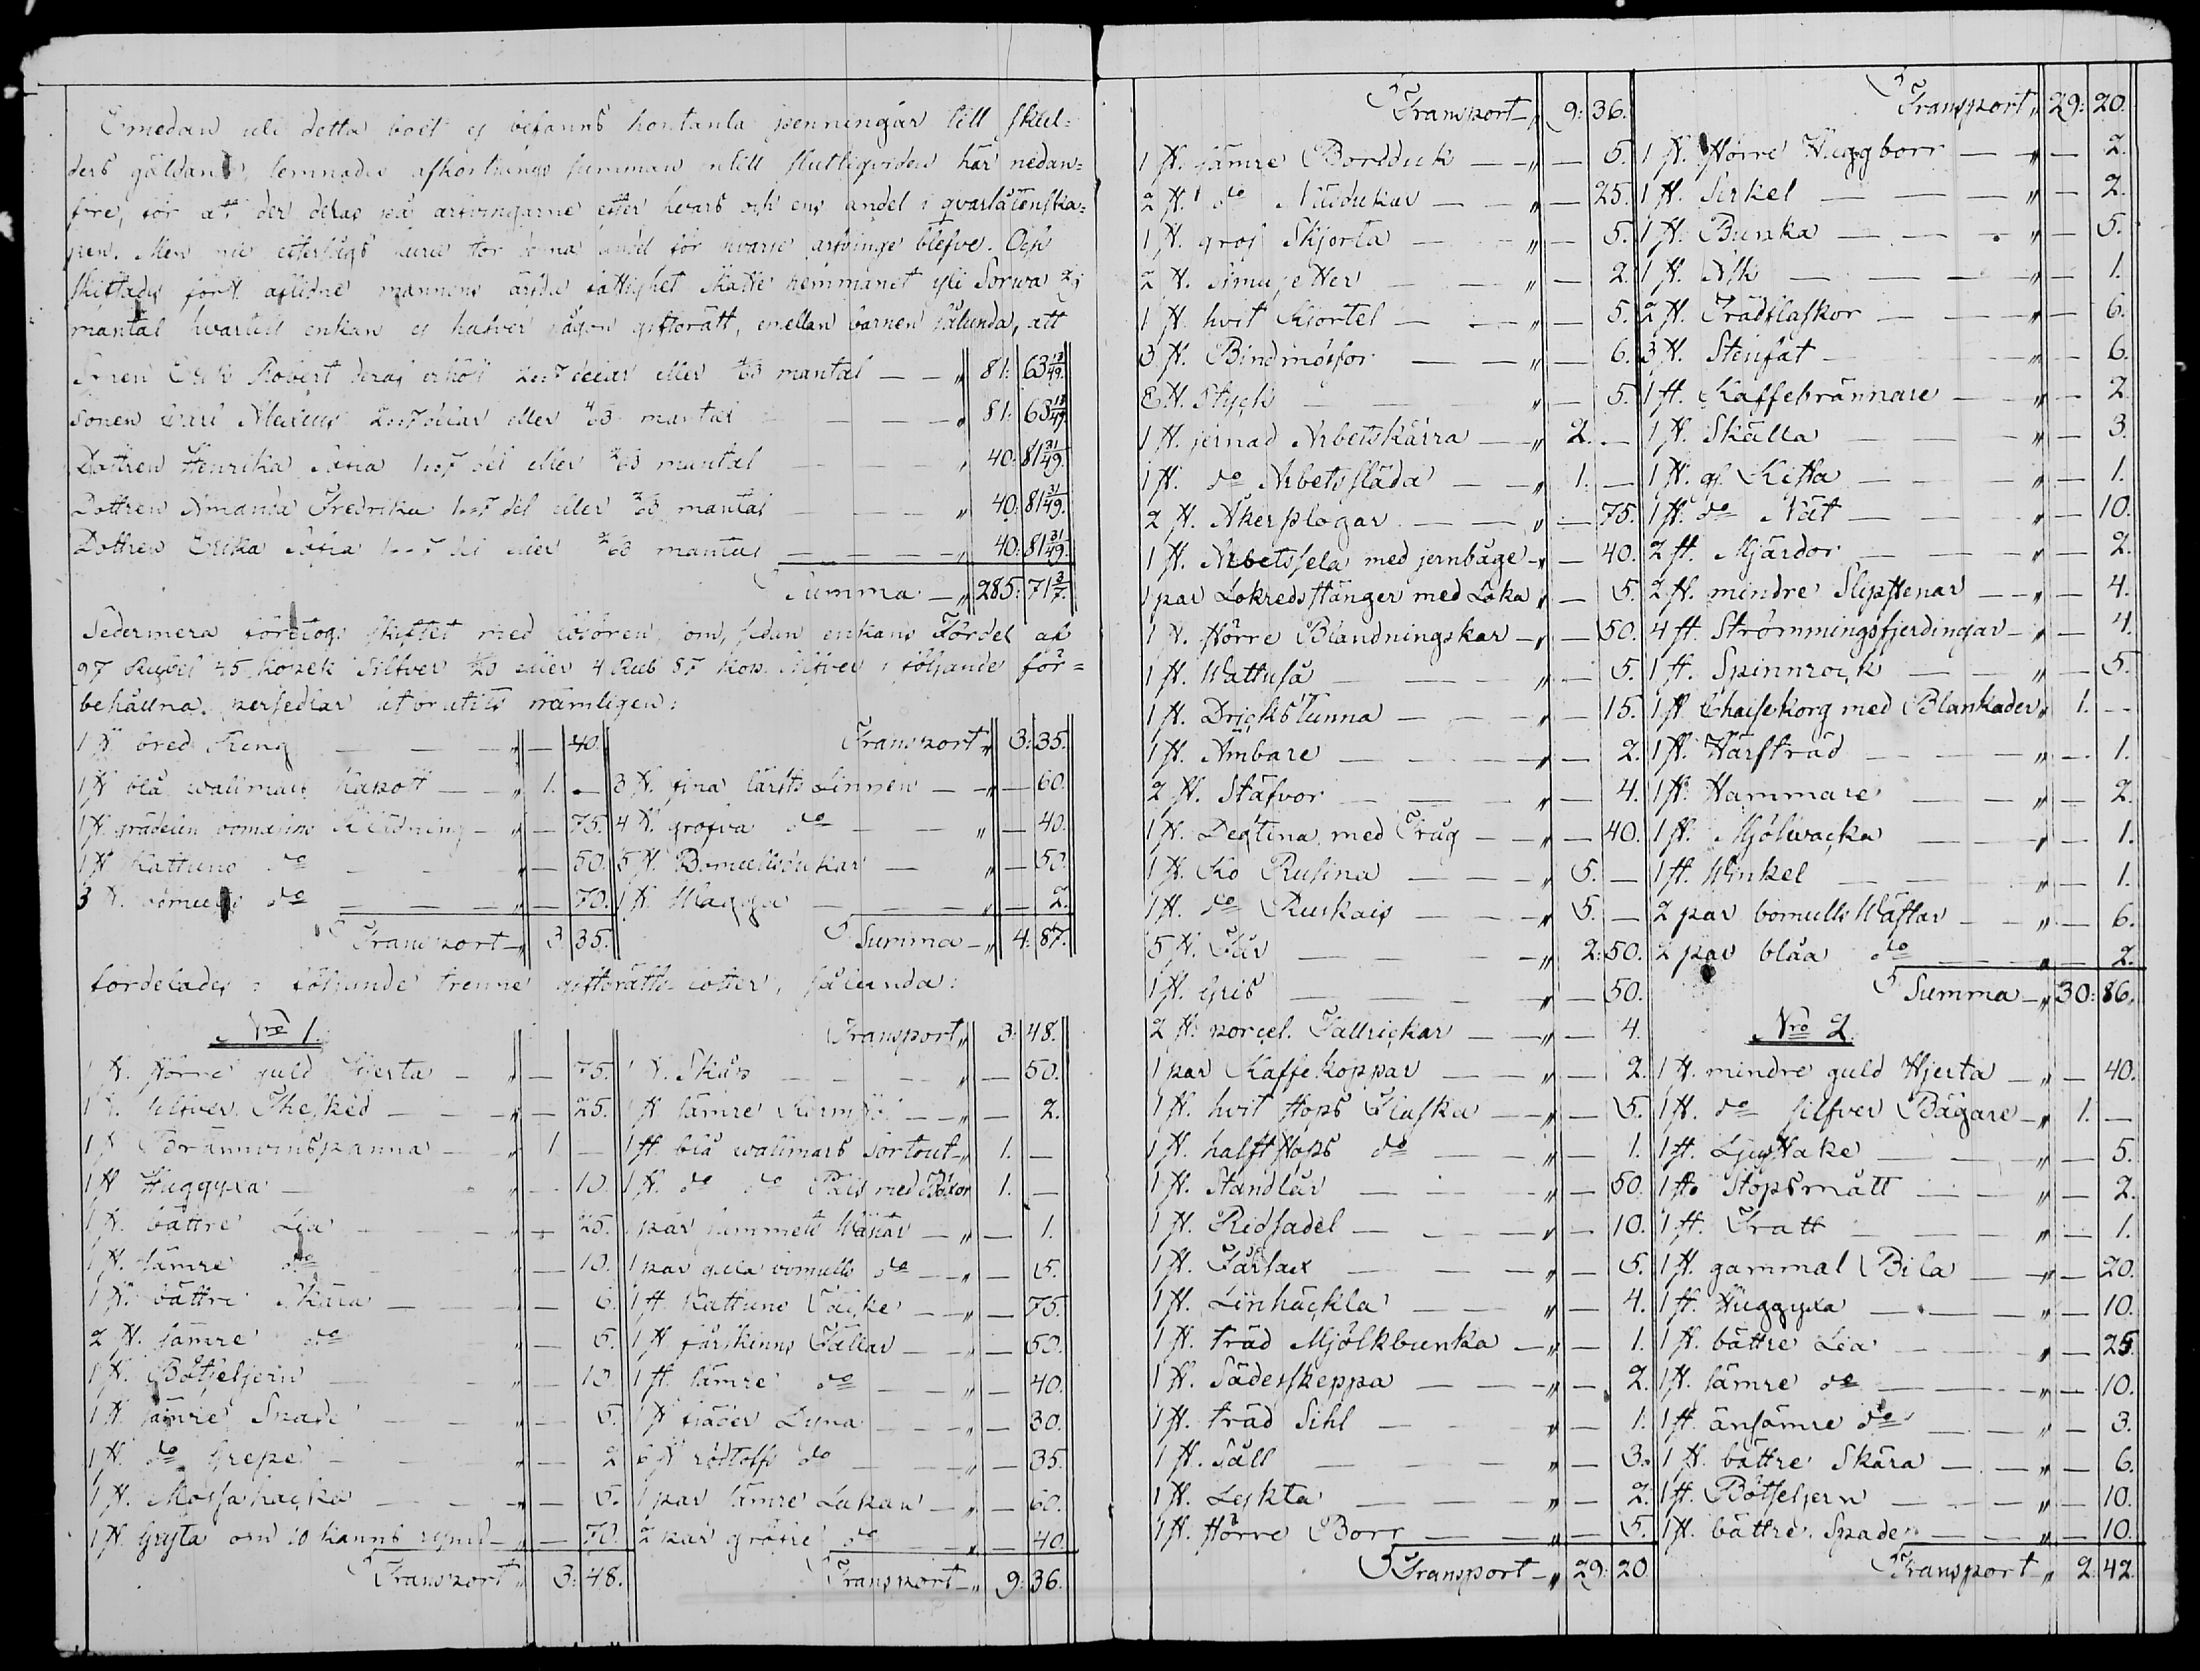 Emedan uti detta boet ej befanns kontanta penningar till skul=
ders gäldande, lemnades afkortnings summan till slutliqviden här nedan=
före, för att der delas på arfvingarne efter hvars och ens andel i qvarlåtenska=
pen. Men nu eftersågs huru stor denna andel för hvarje arfvinge blefve. Och
skiftades först aflidne mannens ärfda fattighet Skatte hemmanet Yli Sorwa 2/9
mantal hvartill enkan ej hafver någon giftorätt, emellan barnen sålunda, att
Sonen Erik Robert deraf erhöll 2:7 delar eller 4/63 mantal — — „ 81: 63 13/49.
Sonen Carl Alexius 2:7 delar eller 4/63 mantal — — „ 81: 63 13/49.
Dottren Henrika Sofia 1:7 del eller 2/63 mantal — — „ 40: 81 31/49.
Dottren Amanda Fredrika 1:7 del eller 2/63 mantal — — „ 40: 81 31/49.
Dottren Erika Sofia 1:7 del eller 2/63 mantal — — „ 40: 81 31/49.
Summa — „ 285: 71 3/7.
Sedermera företogs skiftet med lösören, som, sedan enkans Fördel af
97 Rubel 45 kopek Silfver 1/20 eller 4 Rub 87 kop. Silfver i följande för=
behållna persedlar utbrutits nämligen:
1 st. bred Ring — „ — 40.
1 st. blå wallmars Kapott — „ 1. —
1 st. grädelin bomulls Klädning — „ — 75.
1 st. Kattuns do — „ — 50.
3 st. bomulls do — „ — 70.
Transport — „ 3: 35.
Transport „ 3: 35.
3 st. fina lärfts Linnen — „ — 60.
4 st. grofva do — „ — 40.
5 st. Bomullsdukar — „ — 50.
1 st. Wagga — „ — 2.
Summa — „ 4: 87.
fördelades i följande trenne giftorätts lotter, sålunda:
Nro 1.
1 st. större guld Hjerta — „ — 75.
1 st. silfver Thesked — „ — 25.
1 st. Bränwinspanna — „ 1 —
1 st. Huggyxa — „ — 10.
1 st. bättre Lia — „ — 25.
1 st. sämre do — „ — 10.
1 st. bättre Skära — „ — 6.
2 st. sämre do — „ — 5.
1 st. Bötseljern — „ — 10.
1 st. sämre Spade — „ — 5.
1 st. do Grepe — „ — 2
1 st. Mossahacka — „ — 5.
1 st. Gryta om 10 kanns rymd — „ — 70.
Transport „ 3: 48.
Transport „ 3: 48.
1 st. Skåp — „ — 50.
1 st. sämre — „ — 2.
1 st. blå wallmars Sortout — „ 1. —
1 st. do do med Böxor 1. —
1 par — „ — 1.
1 par gula bomulls do — „ — 5.
1 st. Kattuns Täcke — „ — 75.
1 st. fårskinns Fällar — „ — 50.
1 st. sämre do — „ — 40.
1 st. fjäder Dyna — „ — 30.
6 st. do — „ — 35.
1 par sämre Lakan — „ — 60.
2 par gröfre do — „ — 40.
Transport — „ 9: 36.
Transport — „ 9: 36.
1 st. sämre Bordduk — „ — 5.
2 st. do Näsdukar — „ — 25.
1 st. grof Skjorta — „ — 5.
2 st. Simusetter — „ — 2.
1 st. hvit Kjortel — „ — 5.
3 st. Bindmössor — „ — 6.
8 st. Styck — „ — 5.
1 st. jernad Arbetskärra — „ 2. —
1 st. do Arbetssläda — „ 1. —
2 st. Åkerplogar — „ — 75.
1 st. Arbetssela med jernbåge — „ — 40.
1 par Lokredsstänger med Loka „ — 5.
1 st. större Blandningskar — „ — 50.
1 st. Wattuså — „ — 5.
1 st. Drickstunna — „ — 15.
1 st. Ämbare — „ — 2.
2 st. Stäfvor — „ — 4.
1 st. Degtina med Tråg — „ — 40.
1 st. Ko Rusina — „ 5. —
1 st. do Ruskais — „ 5. —
5 st. Får — „ 2: 50.
1 st. Gris — „ — 50.
2 st. porcel. Tallrickar — „ — 4.
1 par Kaffe koppar — „ — 2.
1 st. hvit stops Flaska — „ — 5.
1 st. halft stops do — „ — 1.
1 st. Ståndlår — „ — 50.
1 st. Ridsadel — „ — 10.
1 st. Fårsax — „ — 5.
1 st. Linhäckla — „ — 4.
1 st. träd Mjölkbunka — „ — 1.
1 st. Sädesskeppa — „ — 2.
1 st. träd Sihl — „ — 1.
1 st. Såll — „ — 3.
1 st. Leskta — „ — 2.
1 st. större Borr — „ — 5.
Transport — „ 29: 20
Transport „ 29: 20.
1 st. större Huggborr — „ — 2.
1 st. Sirkel — „ — 2.
1 st. Bunka — „ — 5.
1 st. Ask — „ — 1.
2 st. Trädflaskor — „ — 6.
3 st. Stenfat — „ — 6.
1 st. Kaffebrännare — „ — 2.
1 st. Skälla — „ — 3.
1 st. gl. Kista — „ — 1.
1 st. do Nät — „ — 10.
2 st. Mjärdor — „ — 2.
2 st. mindre Slipstenar — „ — 4.
4 st. Strömmingsfjerdingar — „ — 4.
1 st. Spinnrock — „ — 5.
1 st. Chaisekorg med Blankader „ 1. —
1 st. Härfträd — „ — 1.
1 st. Hammare — „ — 2.
1 st. Mjölwacka — „ — 1.
1 st. Winkel — „ — 1.
2 par bomulls Wäftar — „ — 6.
2 par blåa do — „ — 2.
Summa — „ 30: 86.
Nro 2.
1 st. mindre guld Hjerta — „ — 40.
1 st. do silfver Bägare — „ 1. —
1 st. Ljusstake — „ — 5.
1 st. Stopsmått — „ — 2.
1 st. Tratt — „ — 1.
1 st. gammal Bila — „ — 20.
1 st. Huggyxa — „ — 10.
1 st. bättre Lia — „ — 25.
1 st. sämre do — „ — 10.
1 st. änsämre do — „ — 3.
1 st. bättre Skära — „ — 6.
1 st. Bötseljern — „ — 10.
1 st. bättre Spade — „ — 10.
Transport — „ 2: 42.